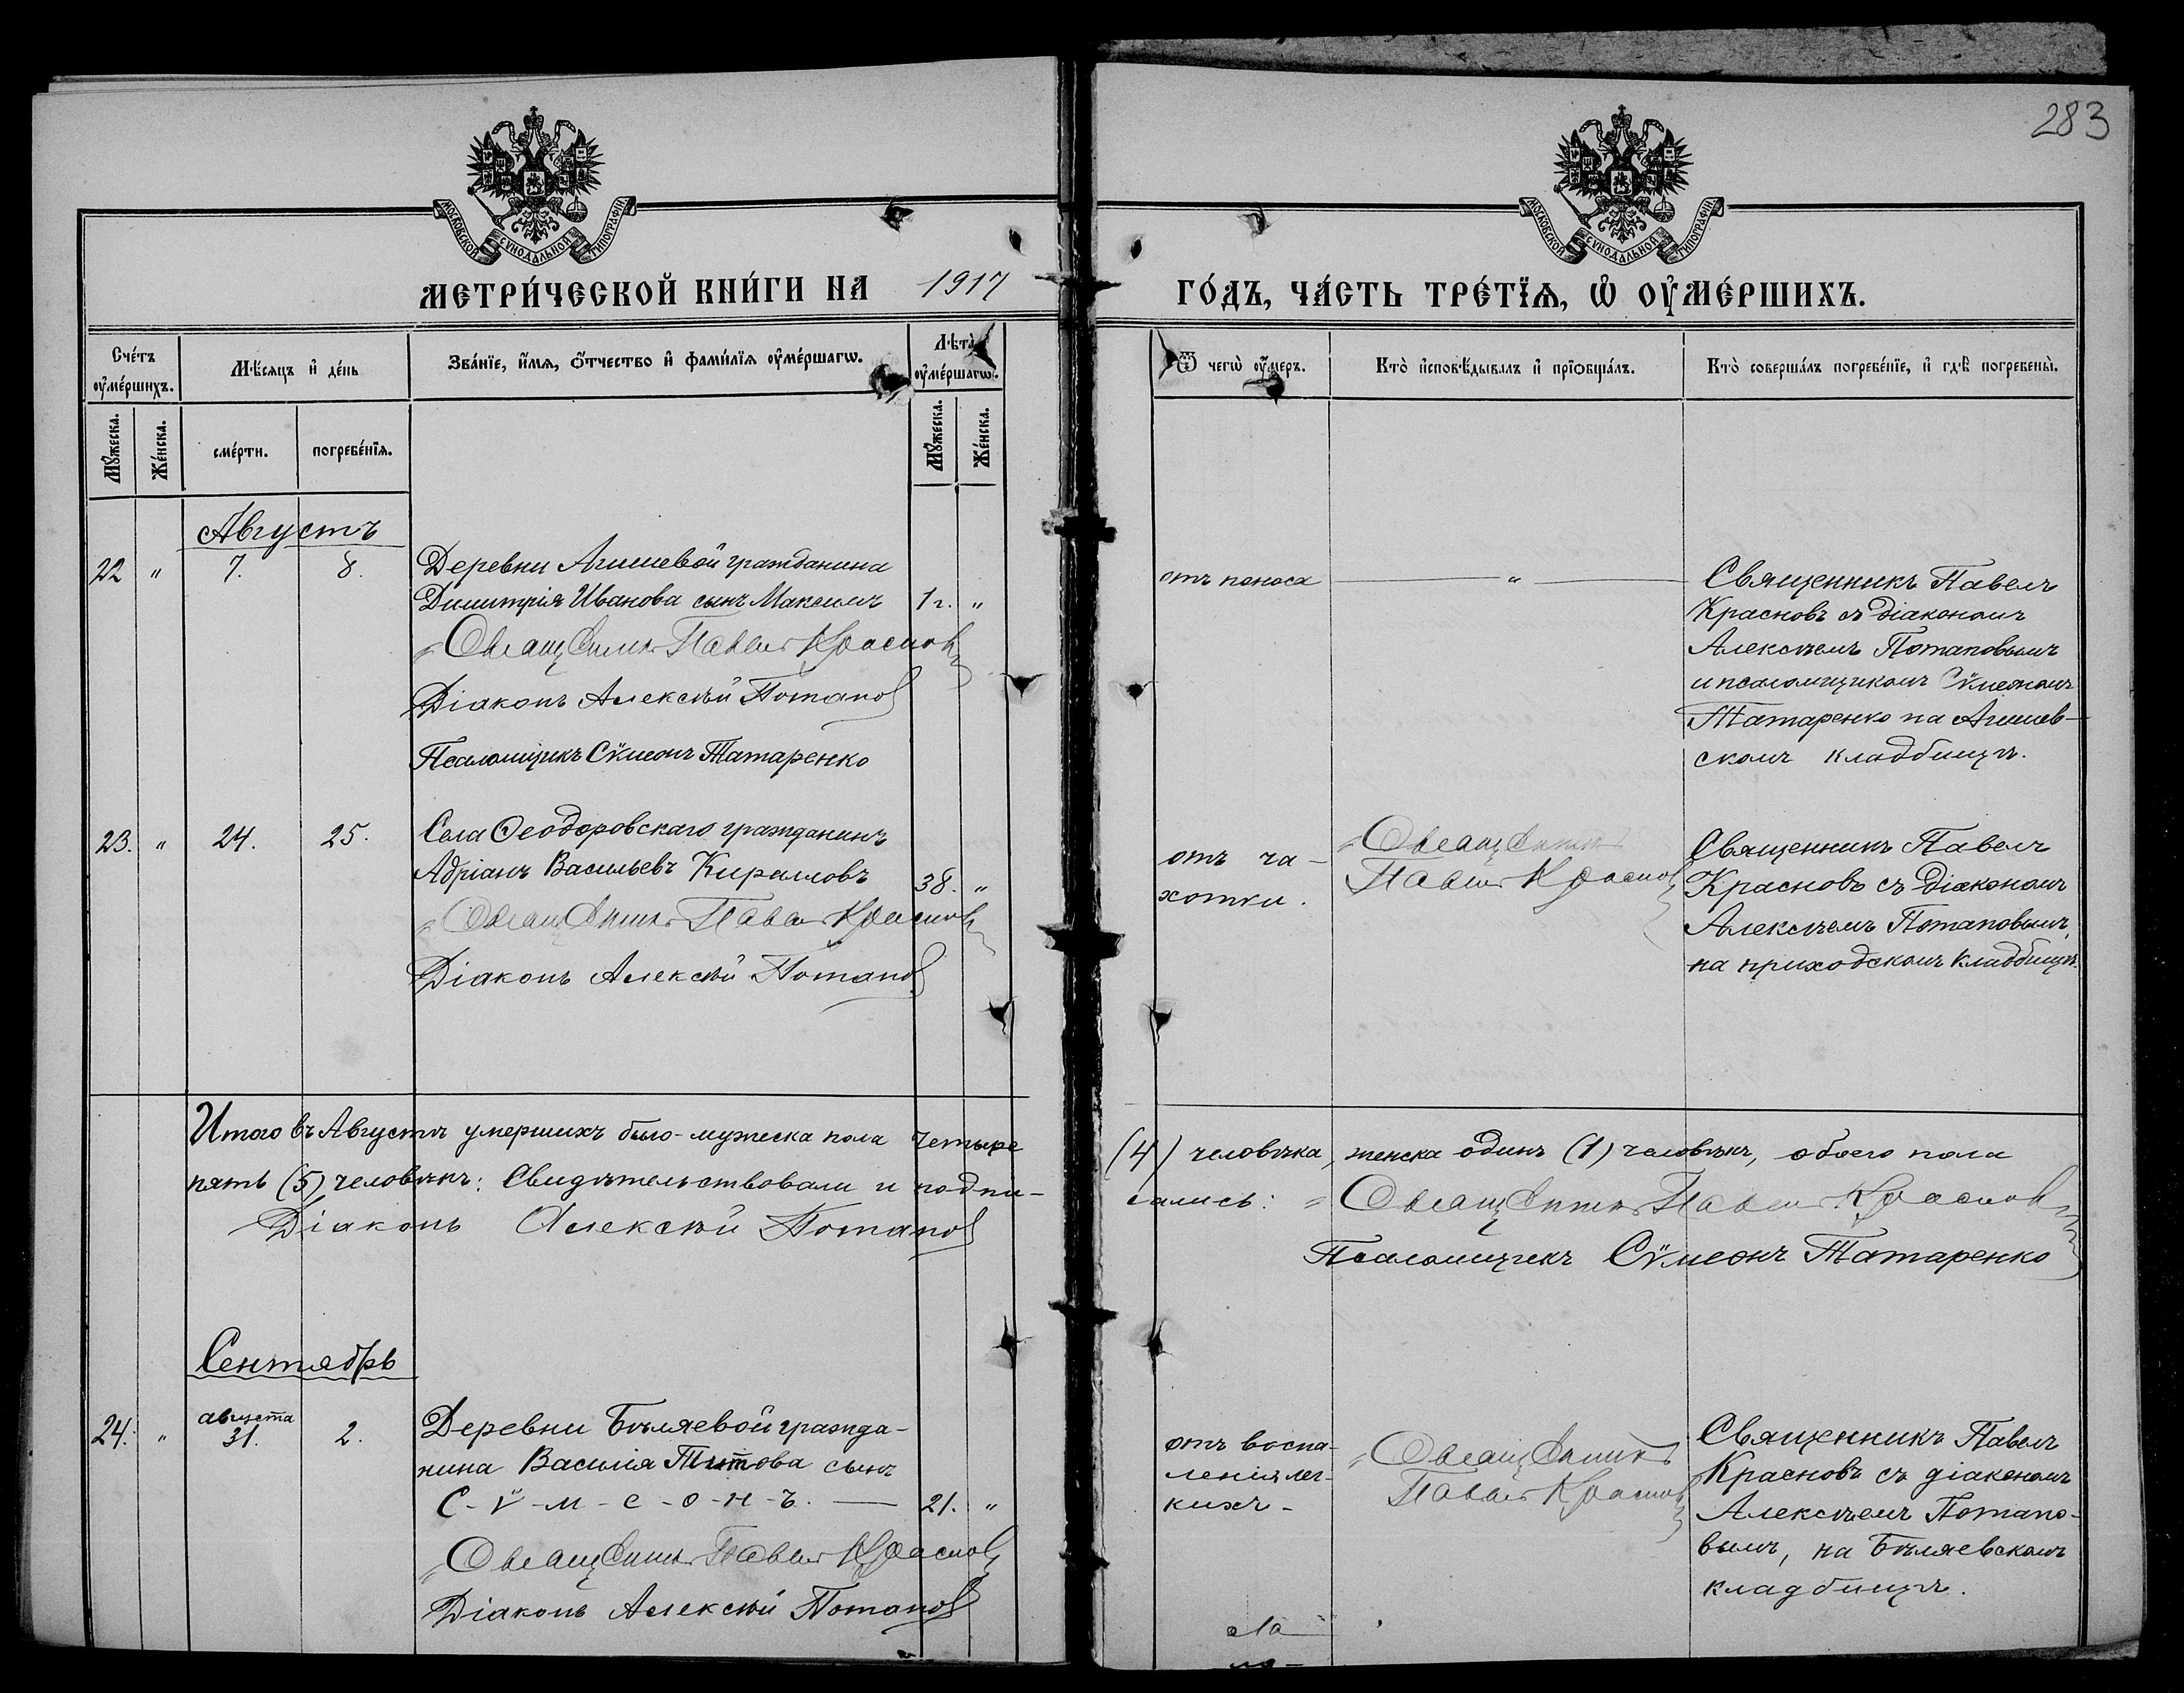 283
МОСКОВСКОЙ СѴНОДАЛЬНОЙ ТИПОГРАФІИ
МОСКОВСКОЙ СѴНОДАЛЬНОЙ ТИПОГРАФІИ
МЕТРИ́ЧЕСКОЙ КНИ́ГИ НА 1917
ГО́ДЪ, ЧА́СТЬ ТРЕ́ТЇѦ, Ѡ ОУ҆МЕ́РШИХЪ.
Сче́тъ оу҆ме́ршихъ.
Мѣ́сяцъ и҆ де́нь
Зва́нїе, и҆́мѧ, ѻ҆́тчество и҆ фами́лїѧ оу҆ме́ршагѡ.
Лѣ́та оу҆ме́ршагѡ.
Мꙋ́жеска.
Же́нска.
сме́рти.
погребе́нїѧ.
Мꙋ́жеска.
Же́нска.
Ѿ чегѡ̀ оу҆́меръ.
Кто̀ и҆сповѣ́дывалъ и҆ прїѡбща́лъ.
Кто̀ соверша́лъ погребе́нїе, и҆ гдѣ̀ погребены̀.
Августъ
22 " 7. 8.
Деревни Агишевой гражданина
Димитрія Иванова сынъ Максимъ 1 г. "
Священникъ Павелъ Красновъ
Діаконъ Алексѣй Потапов
Псаломщикъ Сѷмеонъ Татаренко
отъ поноса — " —
Священникъ Павелъ
Красновъ съ діакономъ
Алексѣемъ Потаповымъ
и псаломщикомъ Сѷмеономъ
Татаренко на Агишев-
скомъ кладбищѣ.
23. " 24. 25.
Села Ѳеодоровскаго гражданинъ
Адріанъ Васильевъ Кирилловъ 38. "
Священникъ Павелъ Красновъ
Діаконъ Алексѣй Потапов
отъ ча-
хотки.
Священникъ
Павелъ Красновъ
Священникъ Павелъ
Красновъ съ діакономъ
Алексѣемъ Потаповымъ,
на приходскомъ кладбищѣ.
Итого въ Августѣ умершихъ было - мужеска пола четыре (4) человѣка, женска одинъ (1) человѣкъ, обоего пола
пять (5) человѣкъ: Свидѣтельствовали и подпи-сались: Священникъ Павелъ Красновъ
Діаконъ Алексѣй Потапов
Псаломщикъ Сѷмеонъ Татаренко
Сентябрь
24. " августа 31. 2.
Деревни Бѣляевой гражда-
нина Василія Титова сынъ
С-ѷ-м-е-о-н-ъ. — 21. "
Священникъ Павелъ Красновъ
Діаконъ Алексѣй Потапов
отъ воспа-
ленія лег-
кихъ -
Священникъ
Павелъ Красновъ
Священникъ Павелъ
Красновъ съ діакономъ
Алексѣемъ Потапо-
вымъ, на Бѣляевскомъ
кладбищѣ.